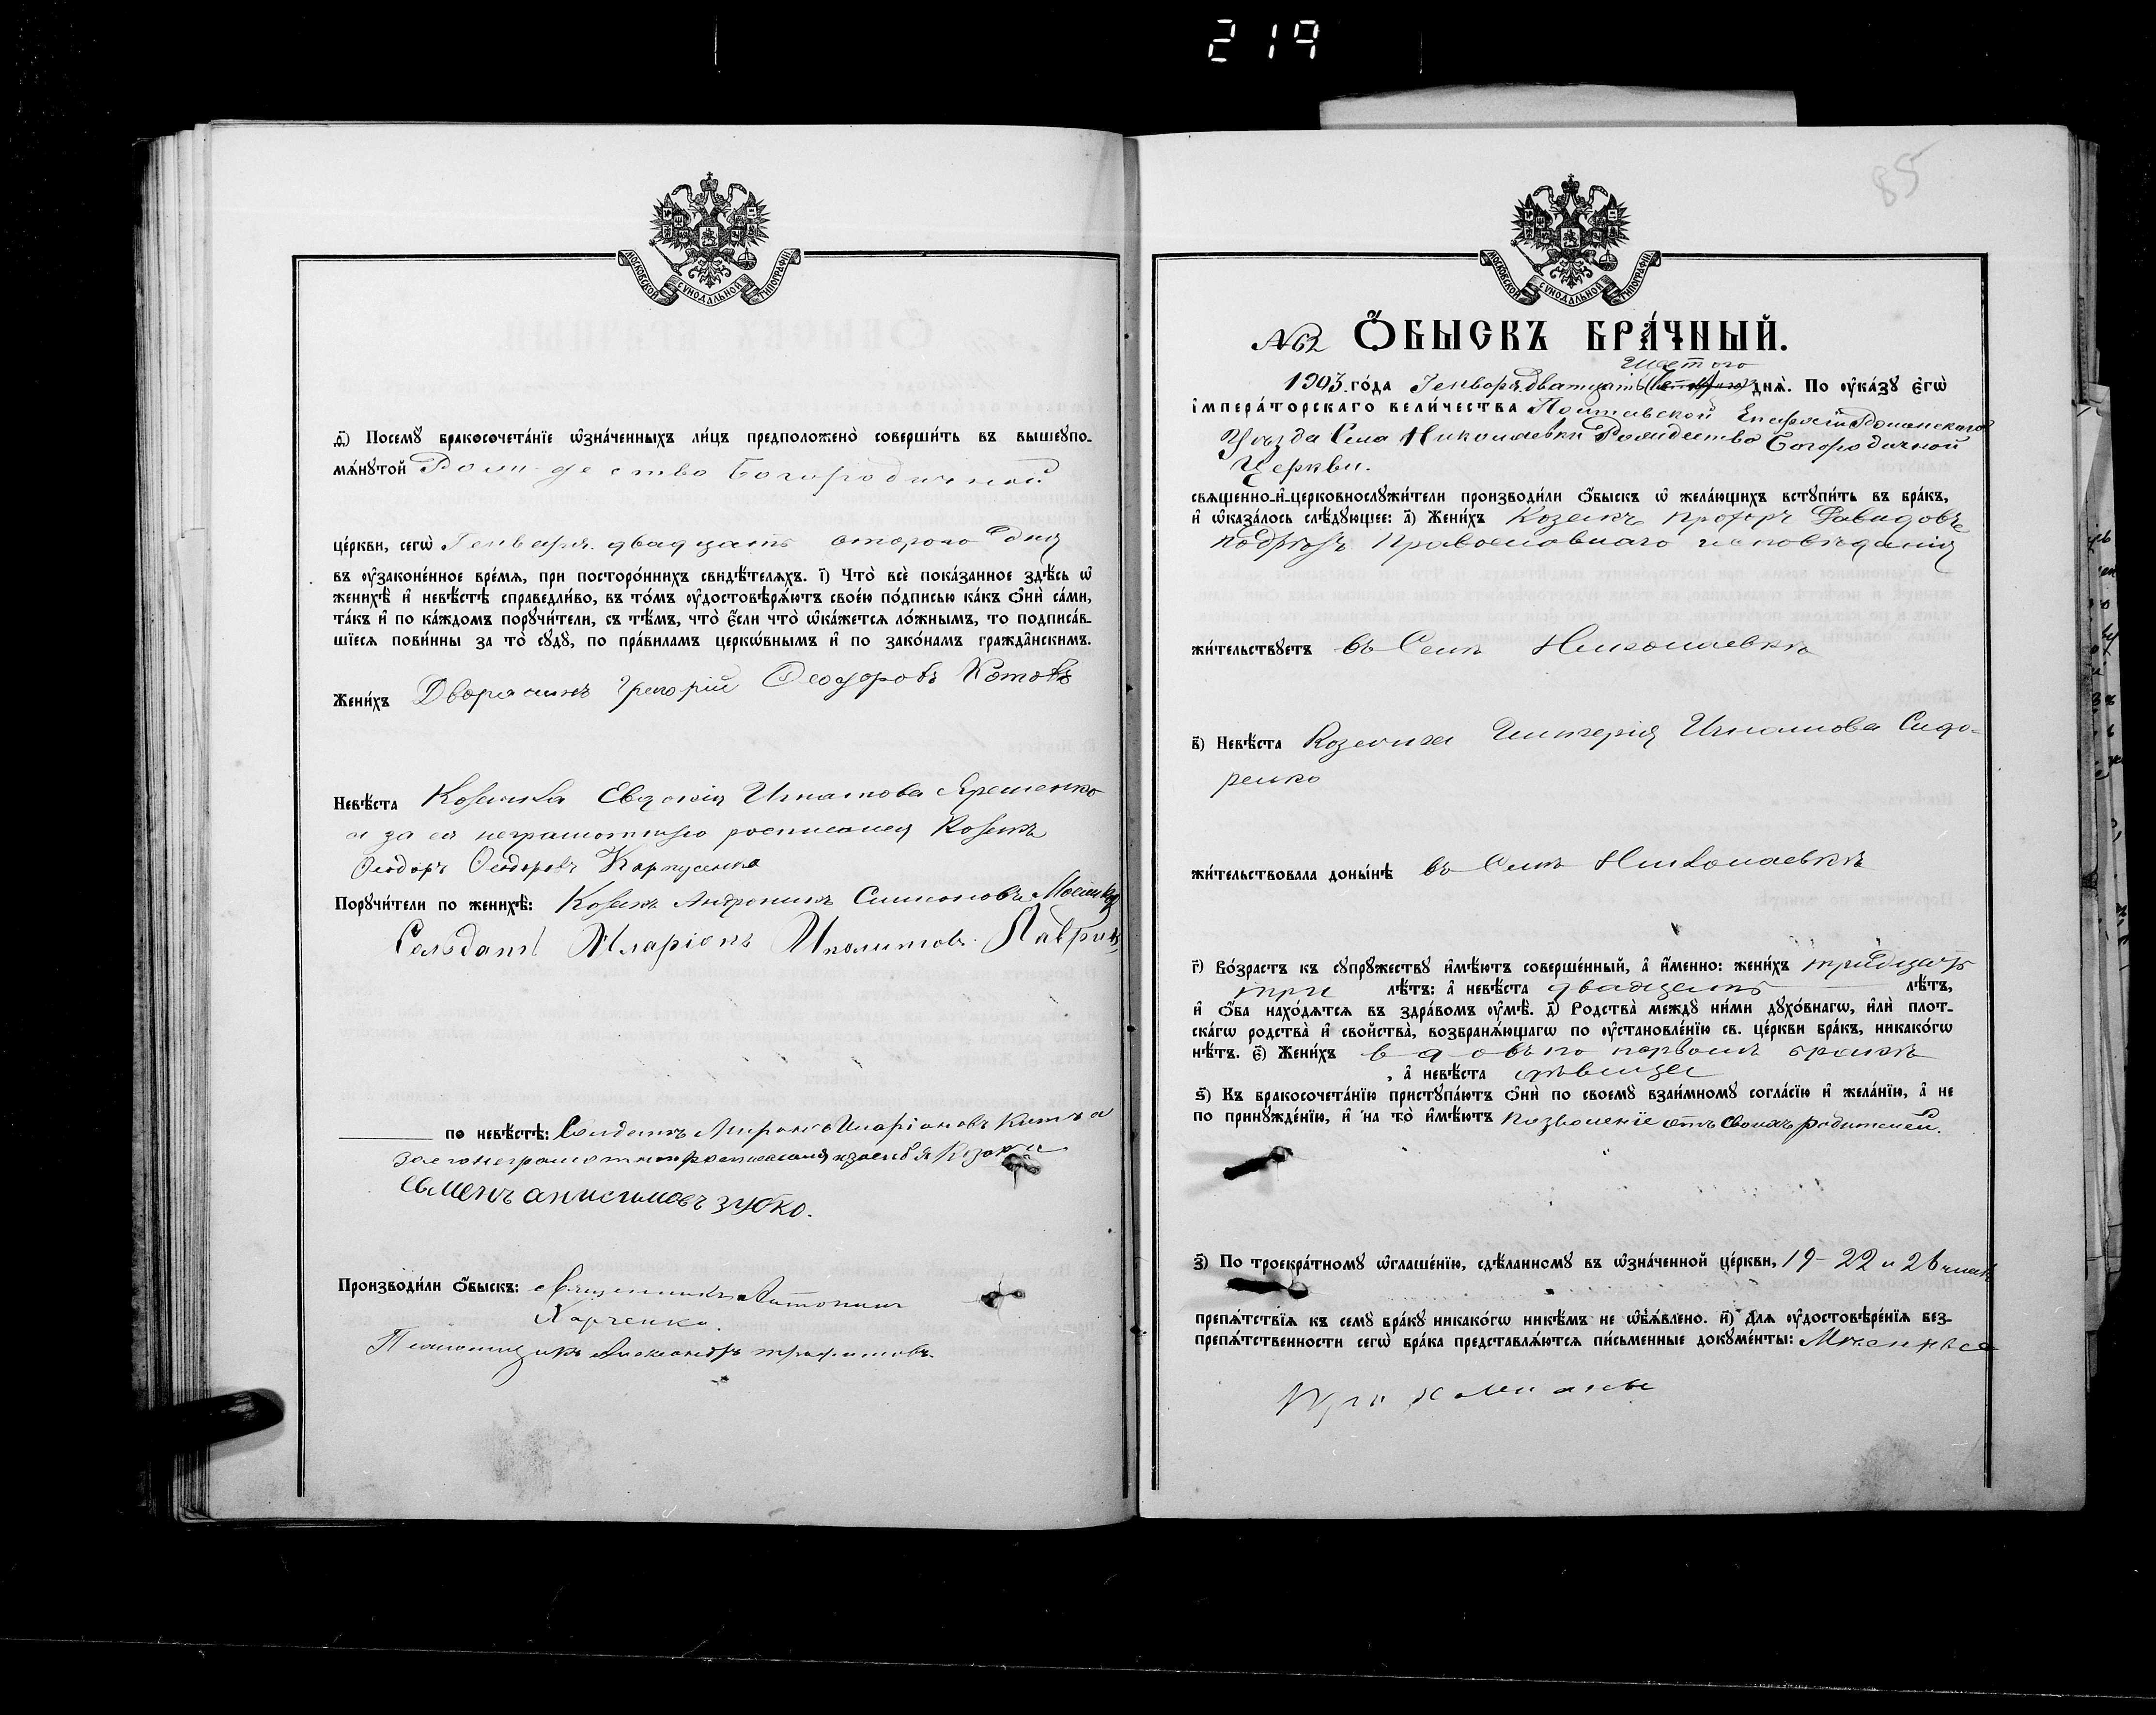 219
МОСКОВСКОЙ СѴНОДАЛЬНОЙ ТИПОГРАФІИ
ѳ҃) Посемꙋ бракосочета́нїе ѡ҆зна́ченныхъ ли́цъ предположено̀ соверши́ть въ вышеꙋпо-
мѧ́нꙋтой Рождество Богородичной
це́ркви, сегѡ̀ Генваря двадцать второго дня
въ ᲂу҆законе́нное вре́мѧ, при посторо́ннихъ свидѣ́телѧхъ. і҃) Что̀ всѐ пока́занное здѣ́сь ѡ҆
женихѣ̀ и҆ невѣ́стѣ справедли́во, въ то́мъ ᲂу҆достовѣрѧ́ютъ свое́ю по́дписью ка́къ ѻ҆нѝ са́ми,
та́къ и҆ по ка́ждомъ порꙋчи́тели, съ тѣ́мъ, что̀ є҆́сли что̀ ѡ҆ка́жетсѧ ло́жнымъ, то подписа́в-
шїесѧ пови́нны за то̀ сꙋдꙋ̀, по пра́виламъ церкѡ́внымъ и҆ по зако́намъ гражда̑нскимъ.
Жени́хъ Дворянинъ Григорій Ѳеодоровъ Котовъ
Невѣ́ста Козачка Евдокія Игнатова Ярешенко
а за ея неграмотную росписался Козакъ
Ѳеодоръ Ѳеодоровъ Карпусенко
Порꙋчи́тели по женихѣ̀: Козакъ Андроникъ Симоновъ
Солдатъ Иларіонъ Иполитовъ
по невѣ́стѣ: Солдатъ Миронъ Иларіоновъ
за его неграмотного росписался и за себя Козакъ
Семенъ анисимовъ зубко.
Производи́ли ѻ҆́быскъ: Священникъ Антонин
Харченко.
Псаломщикъ Александръ Трофимовъ.
85
МОСКОВСКОЙ СѴНОДАЛЬНОЙ ТИПОГРАФІИ
№ 62 Ѻ҆́БЫСКЪ БРА́ЧНЫЙ.
шестого
1903. го́да Генваря Двадцать днѧ̀. По ᲂу҆ка́зꙋ є҆гѡ̀
і҆мпера́торскаго вели́чества Полтавской Епархіи Роменского
Уѣзда Села Николаевки Рождество Богородичной
Церкви.
свѧще́нно-и҆-церковнослꙋжи́тели производи́ли ѻ҆́быскъ ѡ҆ жела́ющихъ встꙋпи́ть въ бра́къ,
и҆ ѡ҆каза́лось слѣ́дꙋющее: а҃) Жени́хъ Козакъ Прохоръ Давидовъ
Подрѣзъ Православнаго исповѣданія
жи́тельствꙋетъ въ Селѣ Николаевкѣ
в҃) Невѣ́ста Козачка Гликерія Игнатова Сидо-
ренко
жи́тельствовала доны́нѣ въ Селѣ Николаевкѣ
г҃) Во́зрастъ къ сꙋпрꙋ́жествꙋ и҆мѣ́ютъ соверше́нный, а҆ и҆́менно: жени́хъ тридцать
три лѣ́тъ: а҆ невѣ́ста двадцать лѣ́тъ,
и҆ ѻ҆́ба нахо́дѧтсѧ въ здра́вомъ ᲂу҆мѣ̀. д҃) Родства̀ междꙋ̀ ни́ми дꙋхо́внагѡ, и҆лѝ плот-
ска́гѡ родства̀ и҆ сво́йства̀, возбранѧ́ющагѡ по ᲂу҆становле́нїю св. це́ркви бра́къ, никако́гѡ
нѣ́тъ. є҃) Жени́хъ вдовъ по первомъ бракѣ
, а҆ невѣ́ста дѣвица
ѕ҃) Къ бракосочета́нїю пристꙋпа́ютъ ѻ҆нѝ по своемꙋ̀ взаи́мномꙋ согла́сїю и҆ жела́нїю, а҆ не
по принꙋжде́нїю, и҆ на то̀ и҆мѣ́ютъ позволеніе отъ своихъ родителей.
з҃) По троекра́тномꙋ ѡ҆глаше́нїю, сдѣ́ланномꙋ въ ѡ҆зна́ченной це́ркви, 19-22 и 26 числъ
препѧ́тствїѧ къ семꙋ̀ бра́кꙋ никако́гѡ никѣ́мъ не ѡ҆б̾ѧ́влено. и҃) Длѧ ᲂу҆достовѣре́нїѧ без-
препѧ́тственности сегѡ̀ бра́ка представлѧ́ютсѧ пи́сьменные докꙋме́нты: